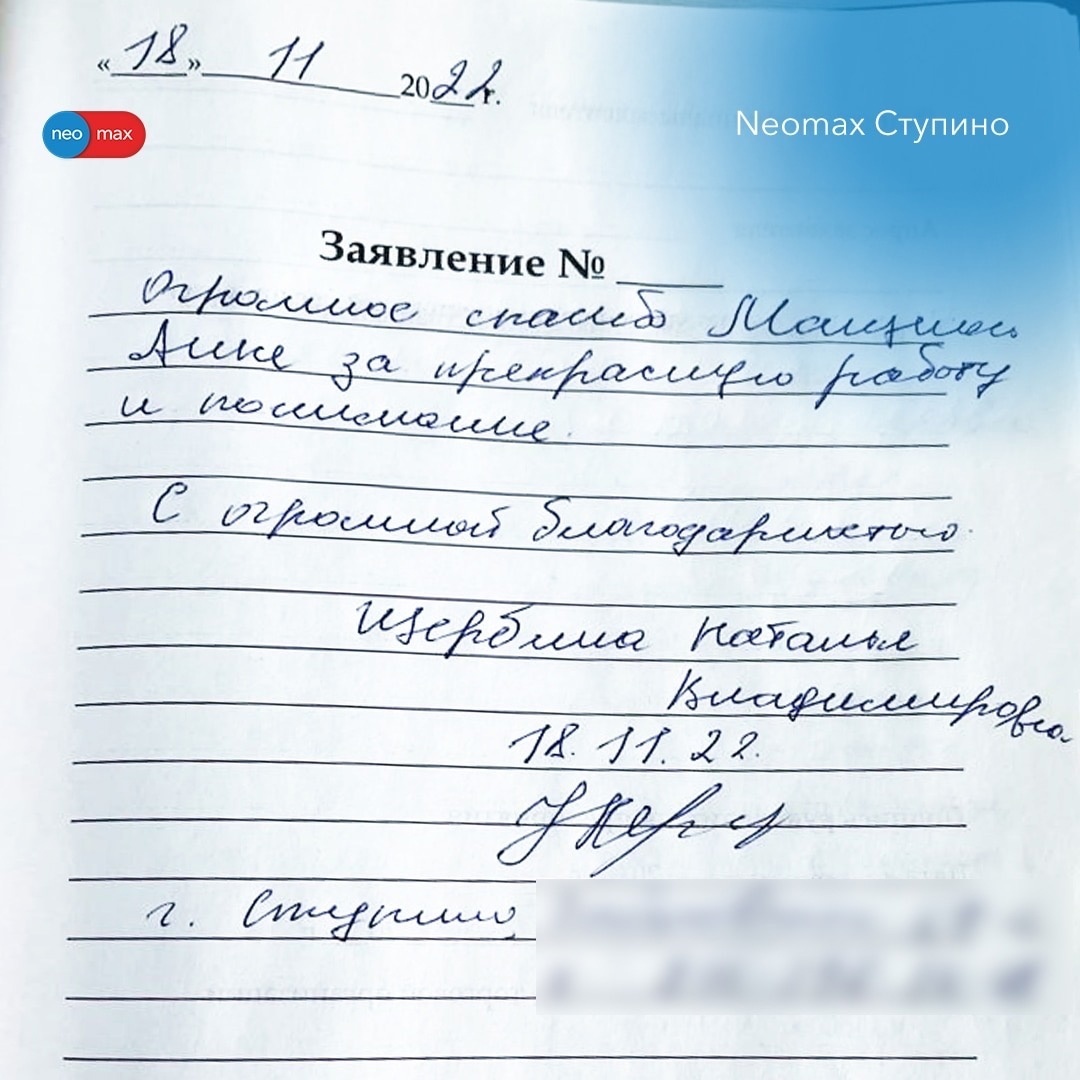 «18» 11 2022 г.
neo max
Neomax Ступино
Заявление №
Огромное спасибо
Анне за прекрасную работу
и понимание.
С огромной благодарностью.
Щербина Наталья
Владимировна
18.11.22.
г. Ступино,